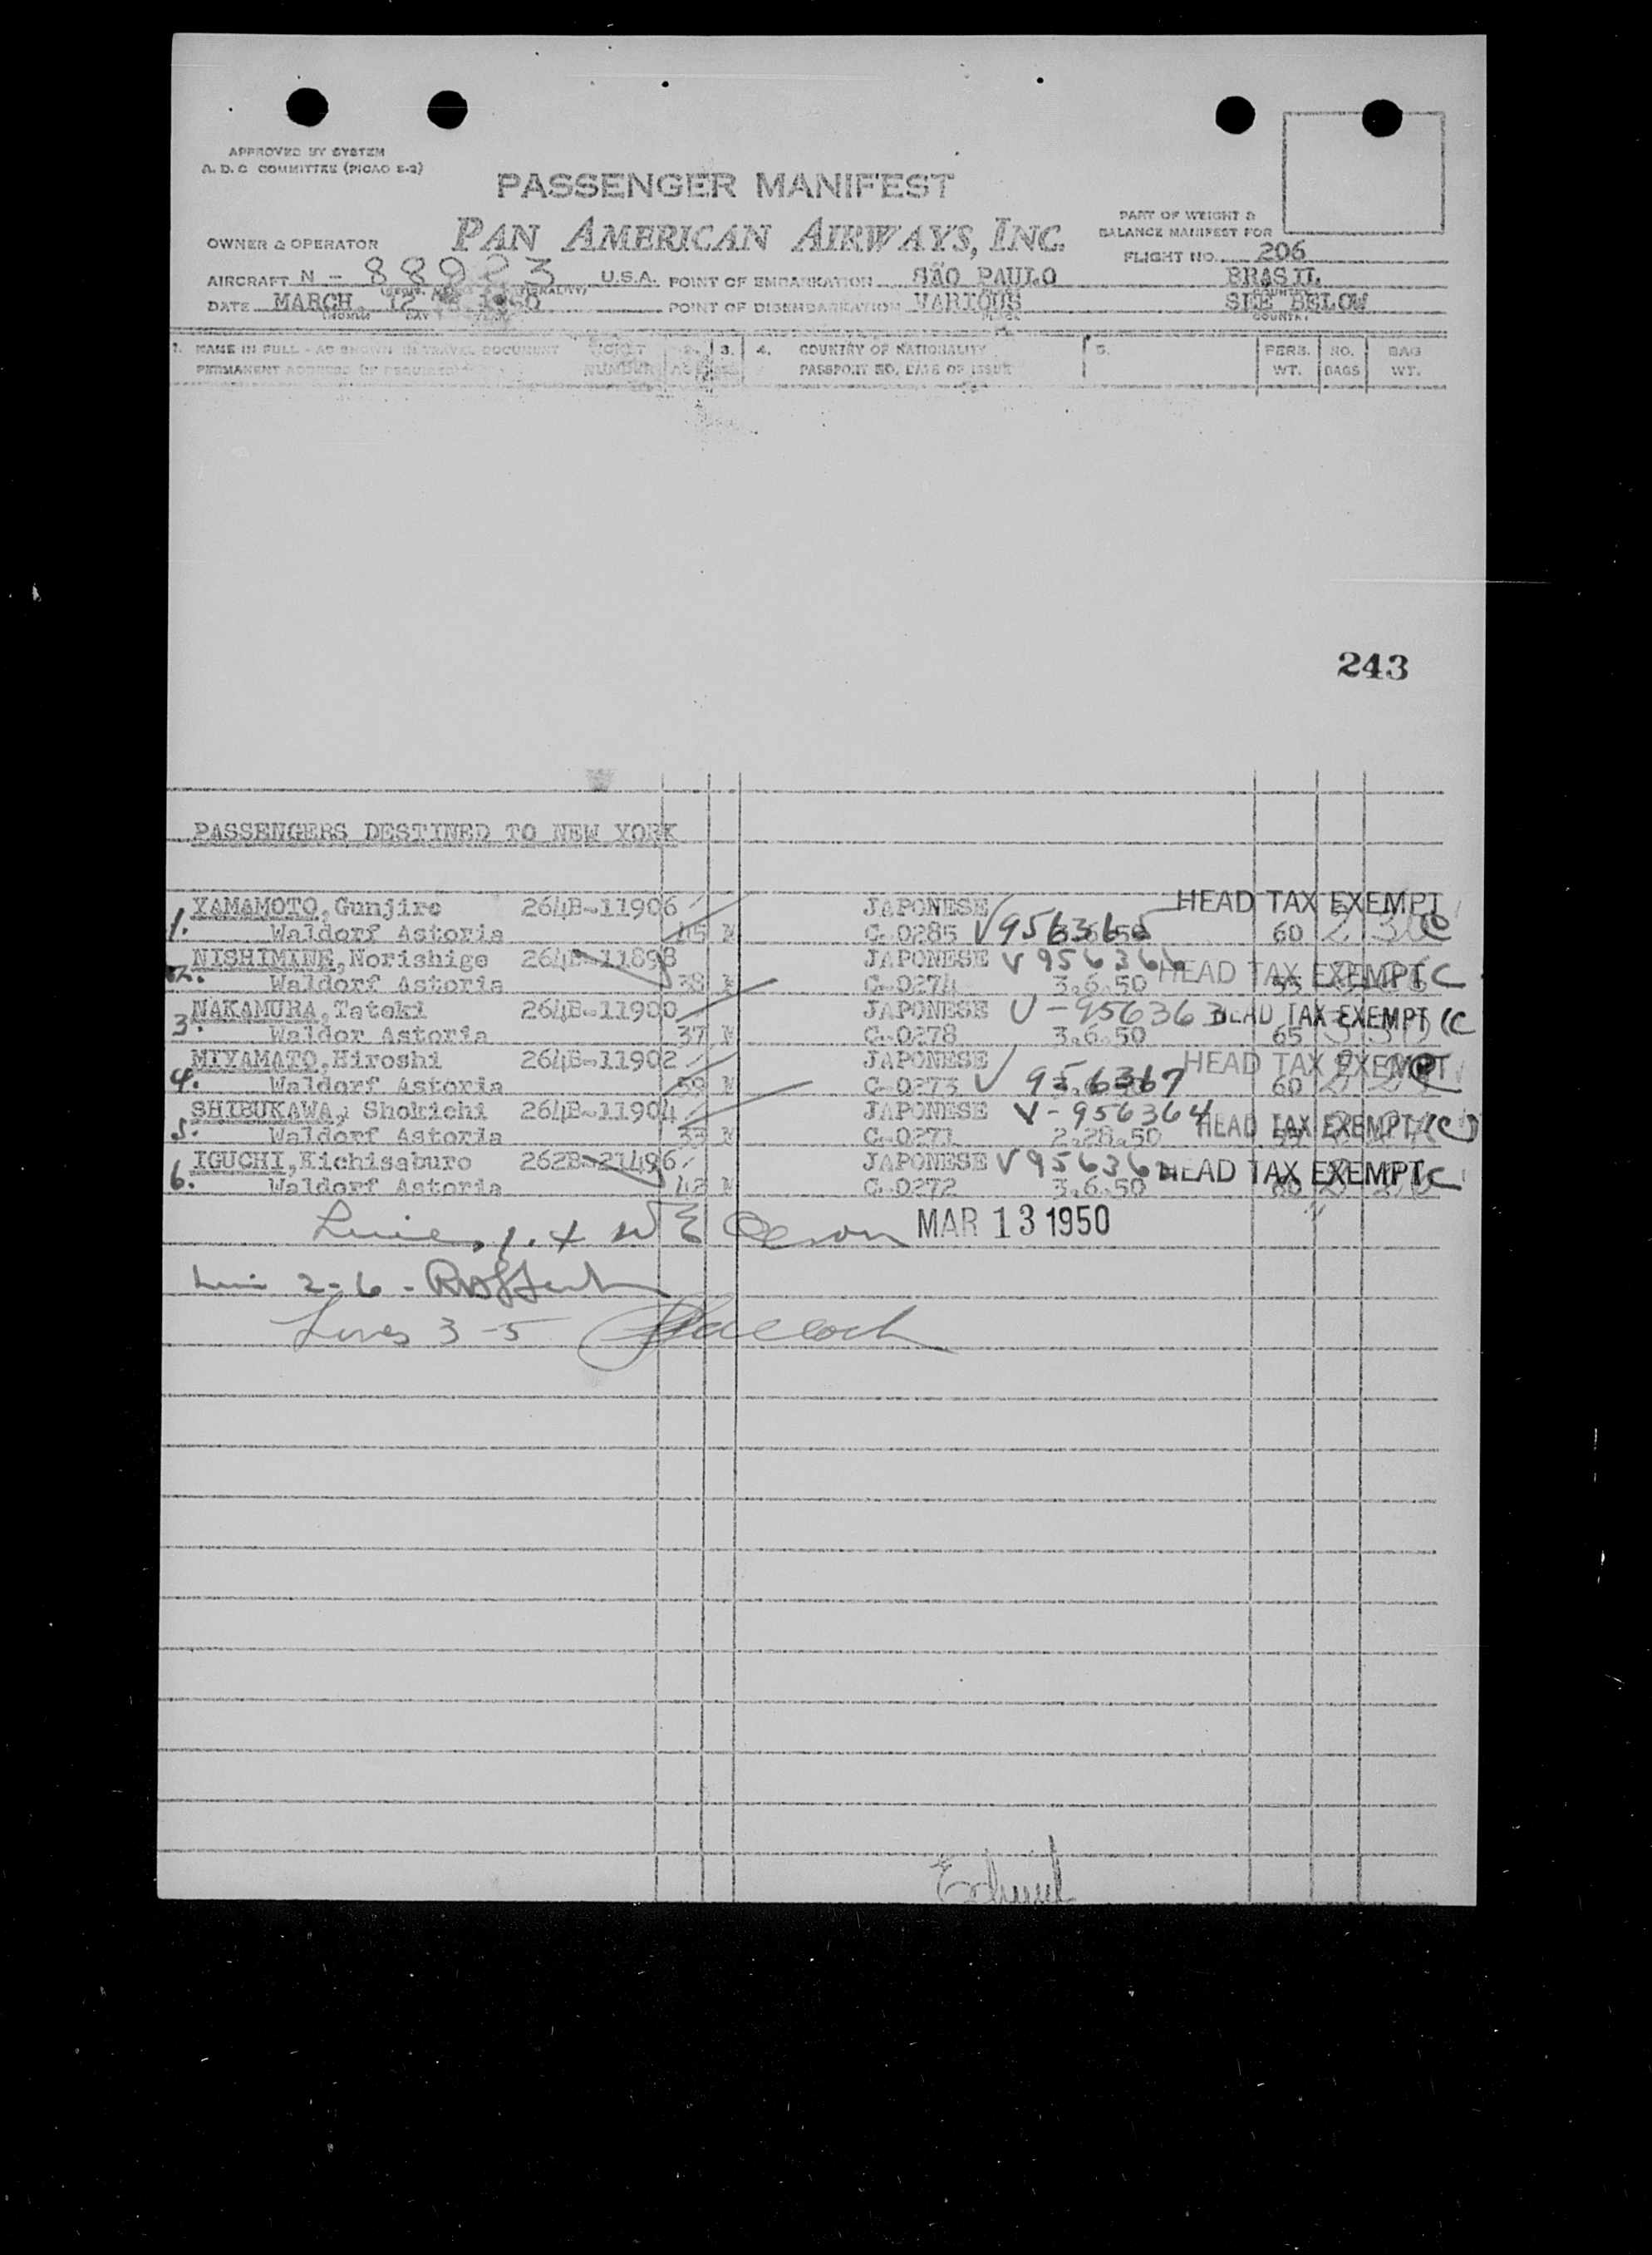 APPROVED BY SYSTEM
A. D. C COMMITTEE (PICAO S-2)
PASSENGER MANIFEST
PAN AMERICAN AIRWAYS, INC.
PART OF WEIGHT &
BALANCE MANIFEST FOR
OWNER & OPERATOR
FLIGHT NO. 206
AIRCRAFT N - 88923 U.S.A. POINT OF EMBARKATION SÃO PAULO BRASIL
DATE MARCH, 12 1950 POINT OF DISEMBARKATION VARIOUS SEE BELOW
MONTH DAY YEAR PLACE COUNTRY
1. NAME IN FULL - AS SHOWN IN TRAVEL DOCUMENT TICKET 2. 3. 4. COUNTRY OF NATIONALITY 5. PERS. NO. BAG
PERMANENT ADDRESS (IF REQUIRED) NUMBER PASSPORT NO. DATE OF ISSUE WT. BAGS WT.
243
PASSENGERS DESTINED TO NEW YORK
YAMAMOTO, Gunjiro 264B-11906 JAPONESE HEAD TAX EXEMPT
1. Waldorf Astoria 45 M C-0285 V956365 60
NISHIMINE, Norishige 264B-11898 JAPONESE V956366 HEAD TAX EXEMPT C
2. Waldorf Astoria 38 M C-0274 3.6.50 55
NAKAMURA, Tateki 264B-11900 JAPONESE V-956363 HEAD TAX EXEMPT (C
3. Waldor Astoria 37 M C-0278 3.6.50 65
MIYAMATO, Hiroshi 264B-11902 JAPONESE HEAD TAX EXEMPT
4. Waldorf Astoria M C-0273 V 956367 60
SHIBUKAWA, Shokichi 264B-11904 JAPONESE V-956364 HEAD TAX EXEMPT (C)
5. Waldorf Astoria M C-0271 2.28.50
IGUCHI, Kichisaburo 262B-21496 JAPONESE HEAD TAX EXEMPT C
6. Waldorf Astoria 42 M C-0272 3.6.50
MAR 13 1950
2-6 -
Lines 3-5